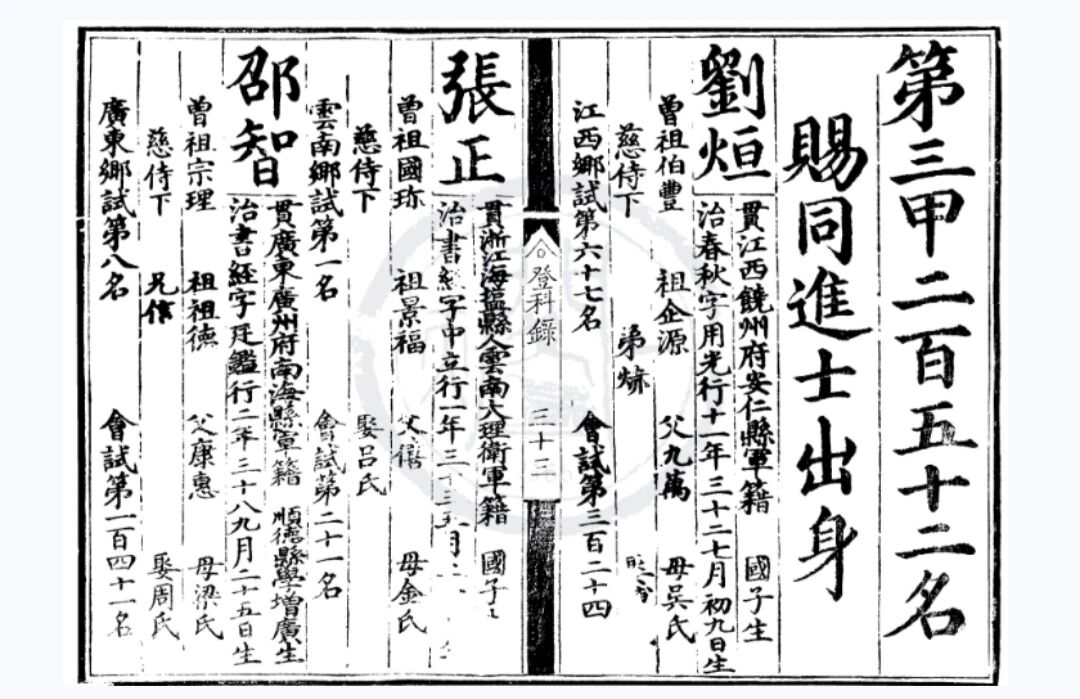 第三甲二百五十二名
賜同進士出身
劉烜
貫江西饒州府安仁縣軍籍 國子生
治春秋字用光行十一年三十二七月初九日生
曾祖伯豐 祖企源 父九萬 母吳氏
慈侍下 弟
江西鄉試第六十七名 會試第三百二十四
登科錄 三十三
張正
貫浙江海塩縣人雲南大理衛軍籍 國子
治書經字中立行一年三十 月
曾祖國珎 祖景福 父 母金氏
慈侍下 娶呂氏
雲南鄉試第一名 會試第二十一名
邵智
貫廣東廣州府南海縣軍籍 順德縣學增廣生
治書經字廷鑑行二年三十八九月二十五日生
曾祖宗理 祖祖德 父康惠 母梁氏
慈侍下 兄信 娶周氏
廣東鄉試第八名 會試第一百四十一名